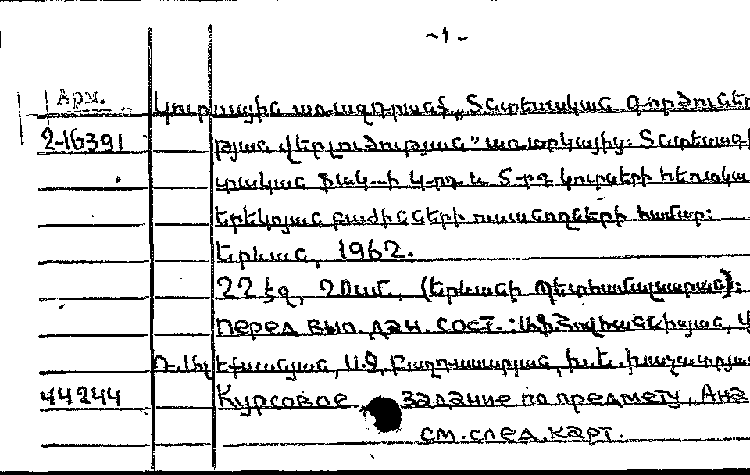 -1-
Арм. Կուրսային առաջադրանք „Տնտեսական գործունեու
2-16391 թյան վերլուծության" առարկայից: Տնտեսագի
տական ֆակ-ի 4-րդ և 5-րդ կուրսերի հեռակա
երեկոյան բաժինների ուսանողների համար:
Երևան, 1962.
22 էջ, 20սմ, (Երևանի Պետհամալսարան):
Перед вып. дан. сост.:
Բաղդասարյան, Խ.Ե.
44244 Курсовое задание по предмету, Ана
см. след. карт.